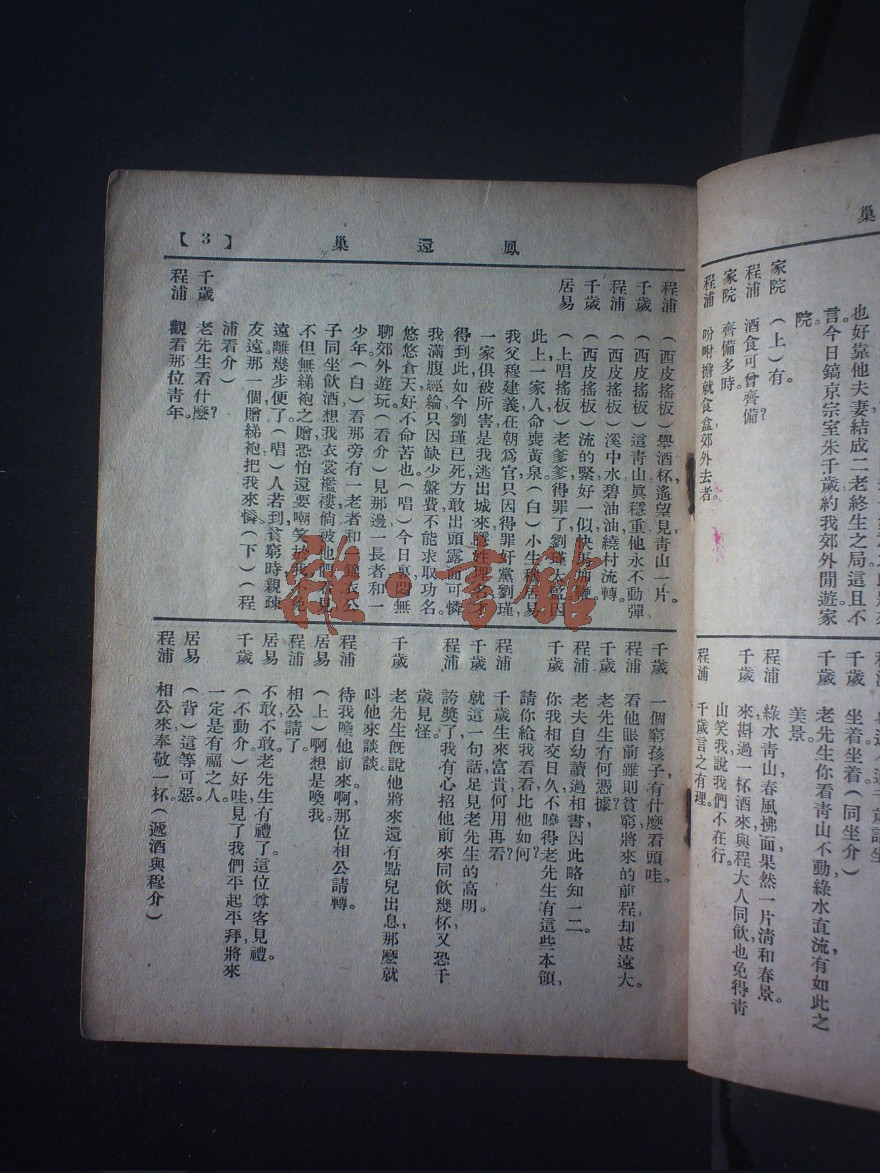 巢
也好靠他夫妻結成二老終生之局這且不
言今日鎬京宗室朱千歲約我郊外閒遊家
院。
家院　(上)有。
程浦　酒食可曾齊備?
家院　齊備多時。
程浦　吩咐擔就食盒郊外去者。
千歲　坐着坐着。(同坐介)
千歲　老先生你看青山不動綠水直流有如此之
美景。
程浦　綠水青山春風拂面果然一片清和春景。
千歲　來斟過一杯酒來與程大人同飲也免得青
山笑我說我們不在行。
程浦　千歲言之有理。
鳳還巢
【3】
程浦　(西皮搖板)舉酒杯遙望見青山一片。
千歲　(西皮搖板)這青山眞穩重他永不動彈
程浦　(西皮搖板)溪中水碧油油繞村流轉。
千歲　(西皮搖板)流的緊好一似快馬加鞭。
居易　(上唱搖板)老爹爹得罪了劉瑾太監因
此上一家人命喪黃泉(白)小生穆居易
我父穆建義在朝爲官只因得罪奸黨劉瑾
一家俱被所害是我逃出城來姓埋名才
得到此如今劉瑾已死方敢出頭露面可憐
我滿腹經綸只因缺少盤費不能求取功名。
悠悠倉天好不命苦也。(唱)今日裏悶無
聊郊外遊玩。(看介)見那邊一長者和一
少年(白)看那旁有一老者和一錦衣公
子同坐飲酒想我衣裳襤褸倘被他們看見
不但無綈袍之贈恐怕還要嘲笑於我不免
遠離幾步便了(唱)人若到貧窮時親疎
友遠那一個贈綈袍把我來憐(下)(程
浦看介)
千歲　老先生看什麽?
程浦　觀看那位青年。
千歲　一個窮孩子有什麽看頭哇。
程浦　看他眼前雖則貧窮將來的前程却甚遠大。
千歲　老先生有何憑據?
程浦　老夫自幼讀過相書因此略知一二。
千歲　你我相交日久不曉得老先生有這些本領,
請你給我看看比他如何?
程浦　千歲生來富貴何用再看?
千歲　就這一句話足見老先生的高明。
程浦　誇獎了我有心招他前來同飲幾杯又恐千
歲見怪。
千歲　老先生旣說他將來還有點兒出息那麽就
叫他來談談。
程浦　待我喚他前來。啊,那位相公請轉。
居易　(上)啊想是喚我。
程浦　相公請了。
居易　不敢不敢老先生有禮了。這位尊客見禮。
千歲　(不動介)好哇見了我們平起平拜將來
一定是有福之人
居易　(背)這等可惡。
程浦　相公來奉敬一杯(遞酒與穆介)
雜·書館